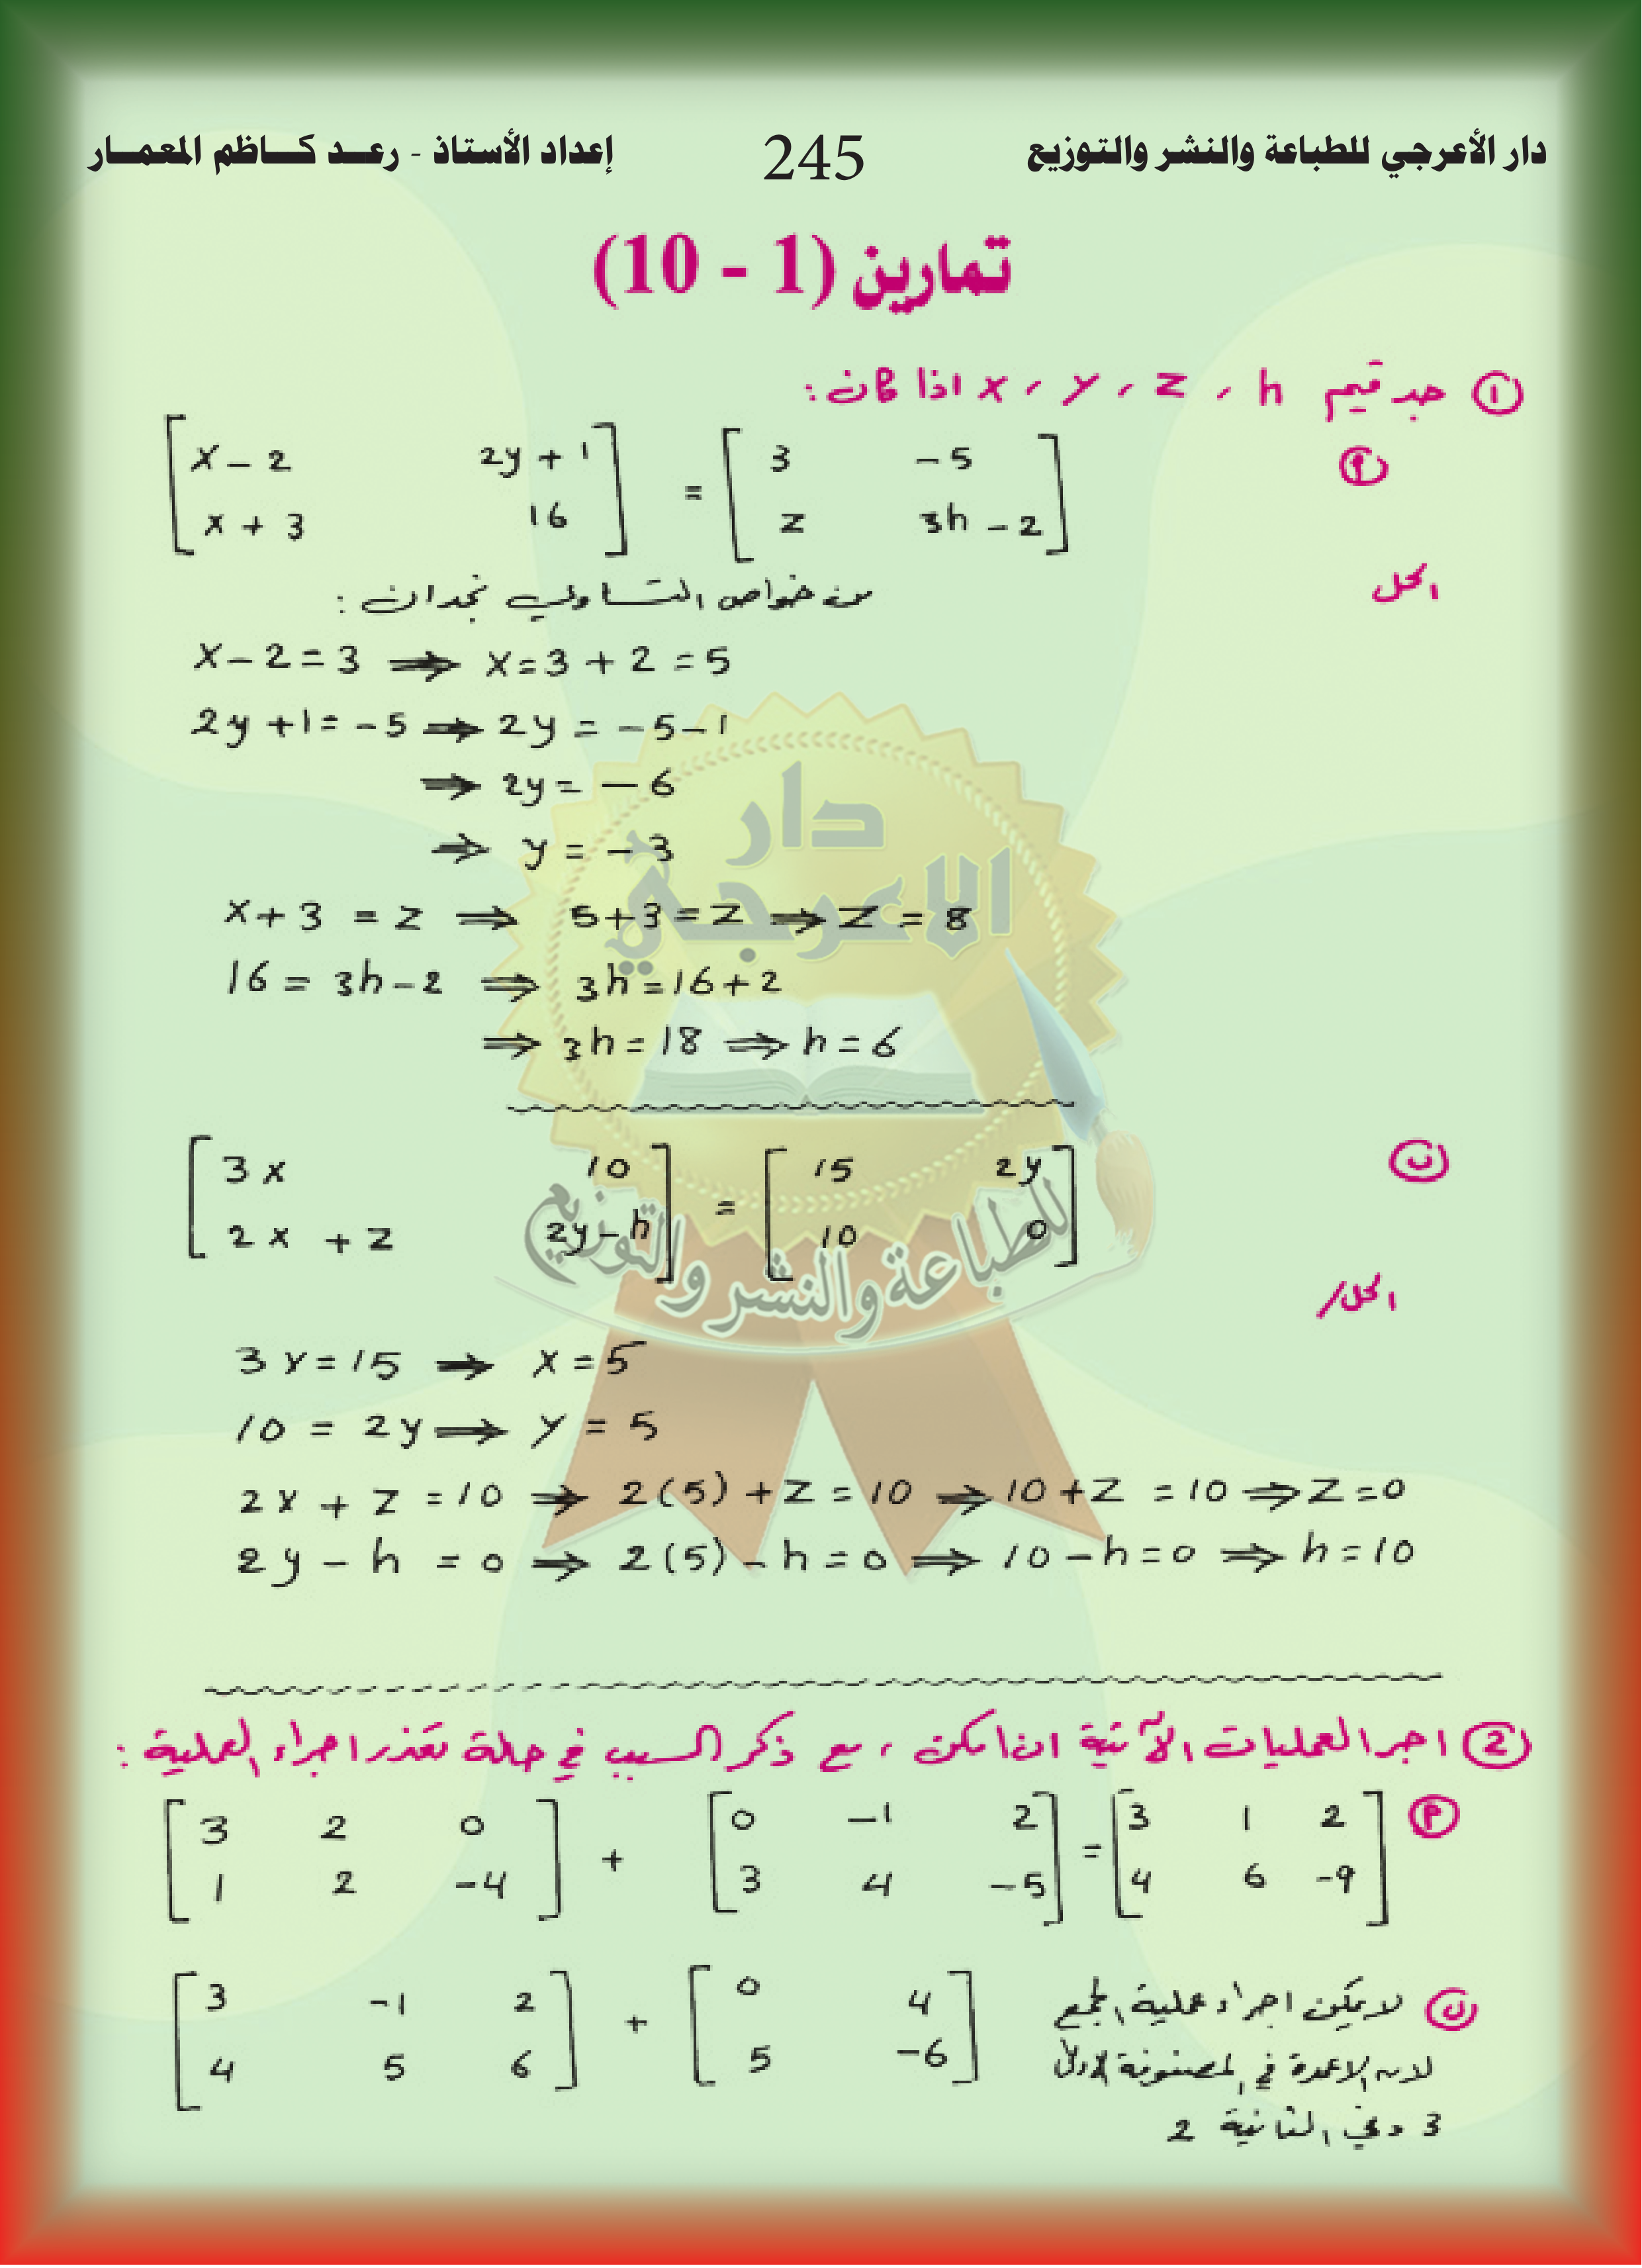 دار الأعرجي للطباعة والنشر والتوزيع 245 إعداد الأستاذ - رعد كاظم المعمار
تمارين (1 - 10)
① جد قيم x ، y ، z ، h اذا كان :
أ
[ x - 2 2y + 1 ] = [ 3 -5 ]
[ x + 3 16 ] [ z 3h - 2 ]
الحل
من خواص التساوي نجد ان :
x - 2 = 3 ⇒ x = 3 + 2 = 5
2y + 1 = -5 ⇒ 2y = -5 - 1
⇒ 2y = -6
⇒ y = -3
x + 3 = z ⇒ 5 + 3 = z ⇒ z = 8
16 = 3h - 2 ⇒ 3h = 16 + 2
⇒ 3h = 18 ⇒ h = 6
ب
[ 3x 10 ] = [ 15 2y ]
[ 2x + z 2y - h ] [ 10 0 ]
الحل /
3x = 15 ⇒ x = 5
10 = 2y ⇒ y = 5
2x + z = 10 ⇒ 2(5) + z = 10 ⇒ 10 + z = 10 ⇒ z = 0
2y - h = 0 ⇒ 2(5) - h = 0 ⇒ 10 - h = 0 ⇒ h = 10
② اجر العمليات الآتية ان امكن ، مع ذكر السبب في حالة تعذر اجراء العملية :
أ
[ 3 2 0 ] + [ 0 -1 2 ] = [ 3 1 2 ]
[ 1 2 -4 ] [ 3 4 -5 ] [ 4 6 -9 ]
ب
[ 3 -1 2 ] + [ 0 4 ]
[ 4 5 6 ] [ 5 -6 ]
لا يمكن اجراء عملية الجمع
لان الاعمدة في المصفوفة الاولى
3 وفي الثانية 2
دار
الاعرجي
للطباعة والنشر والتوزيع